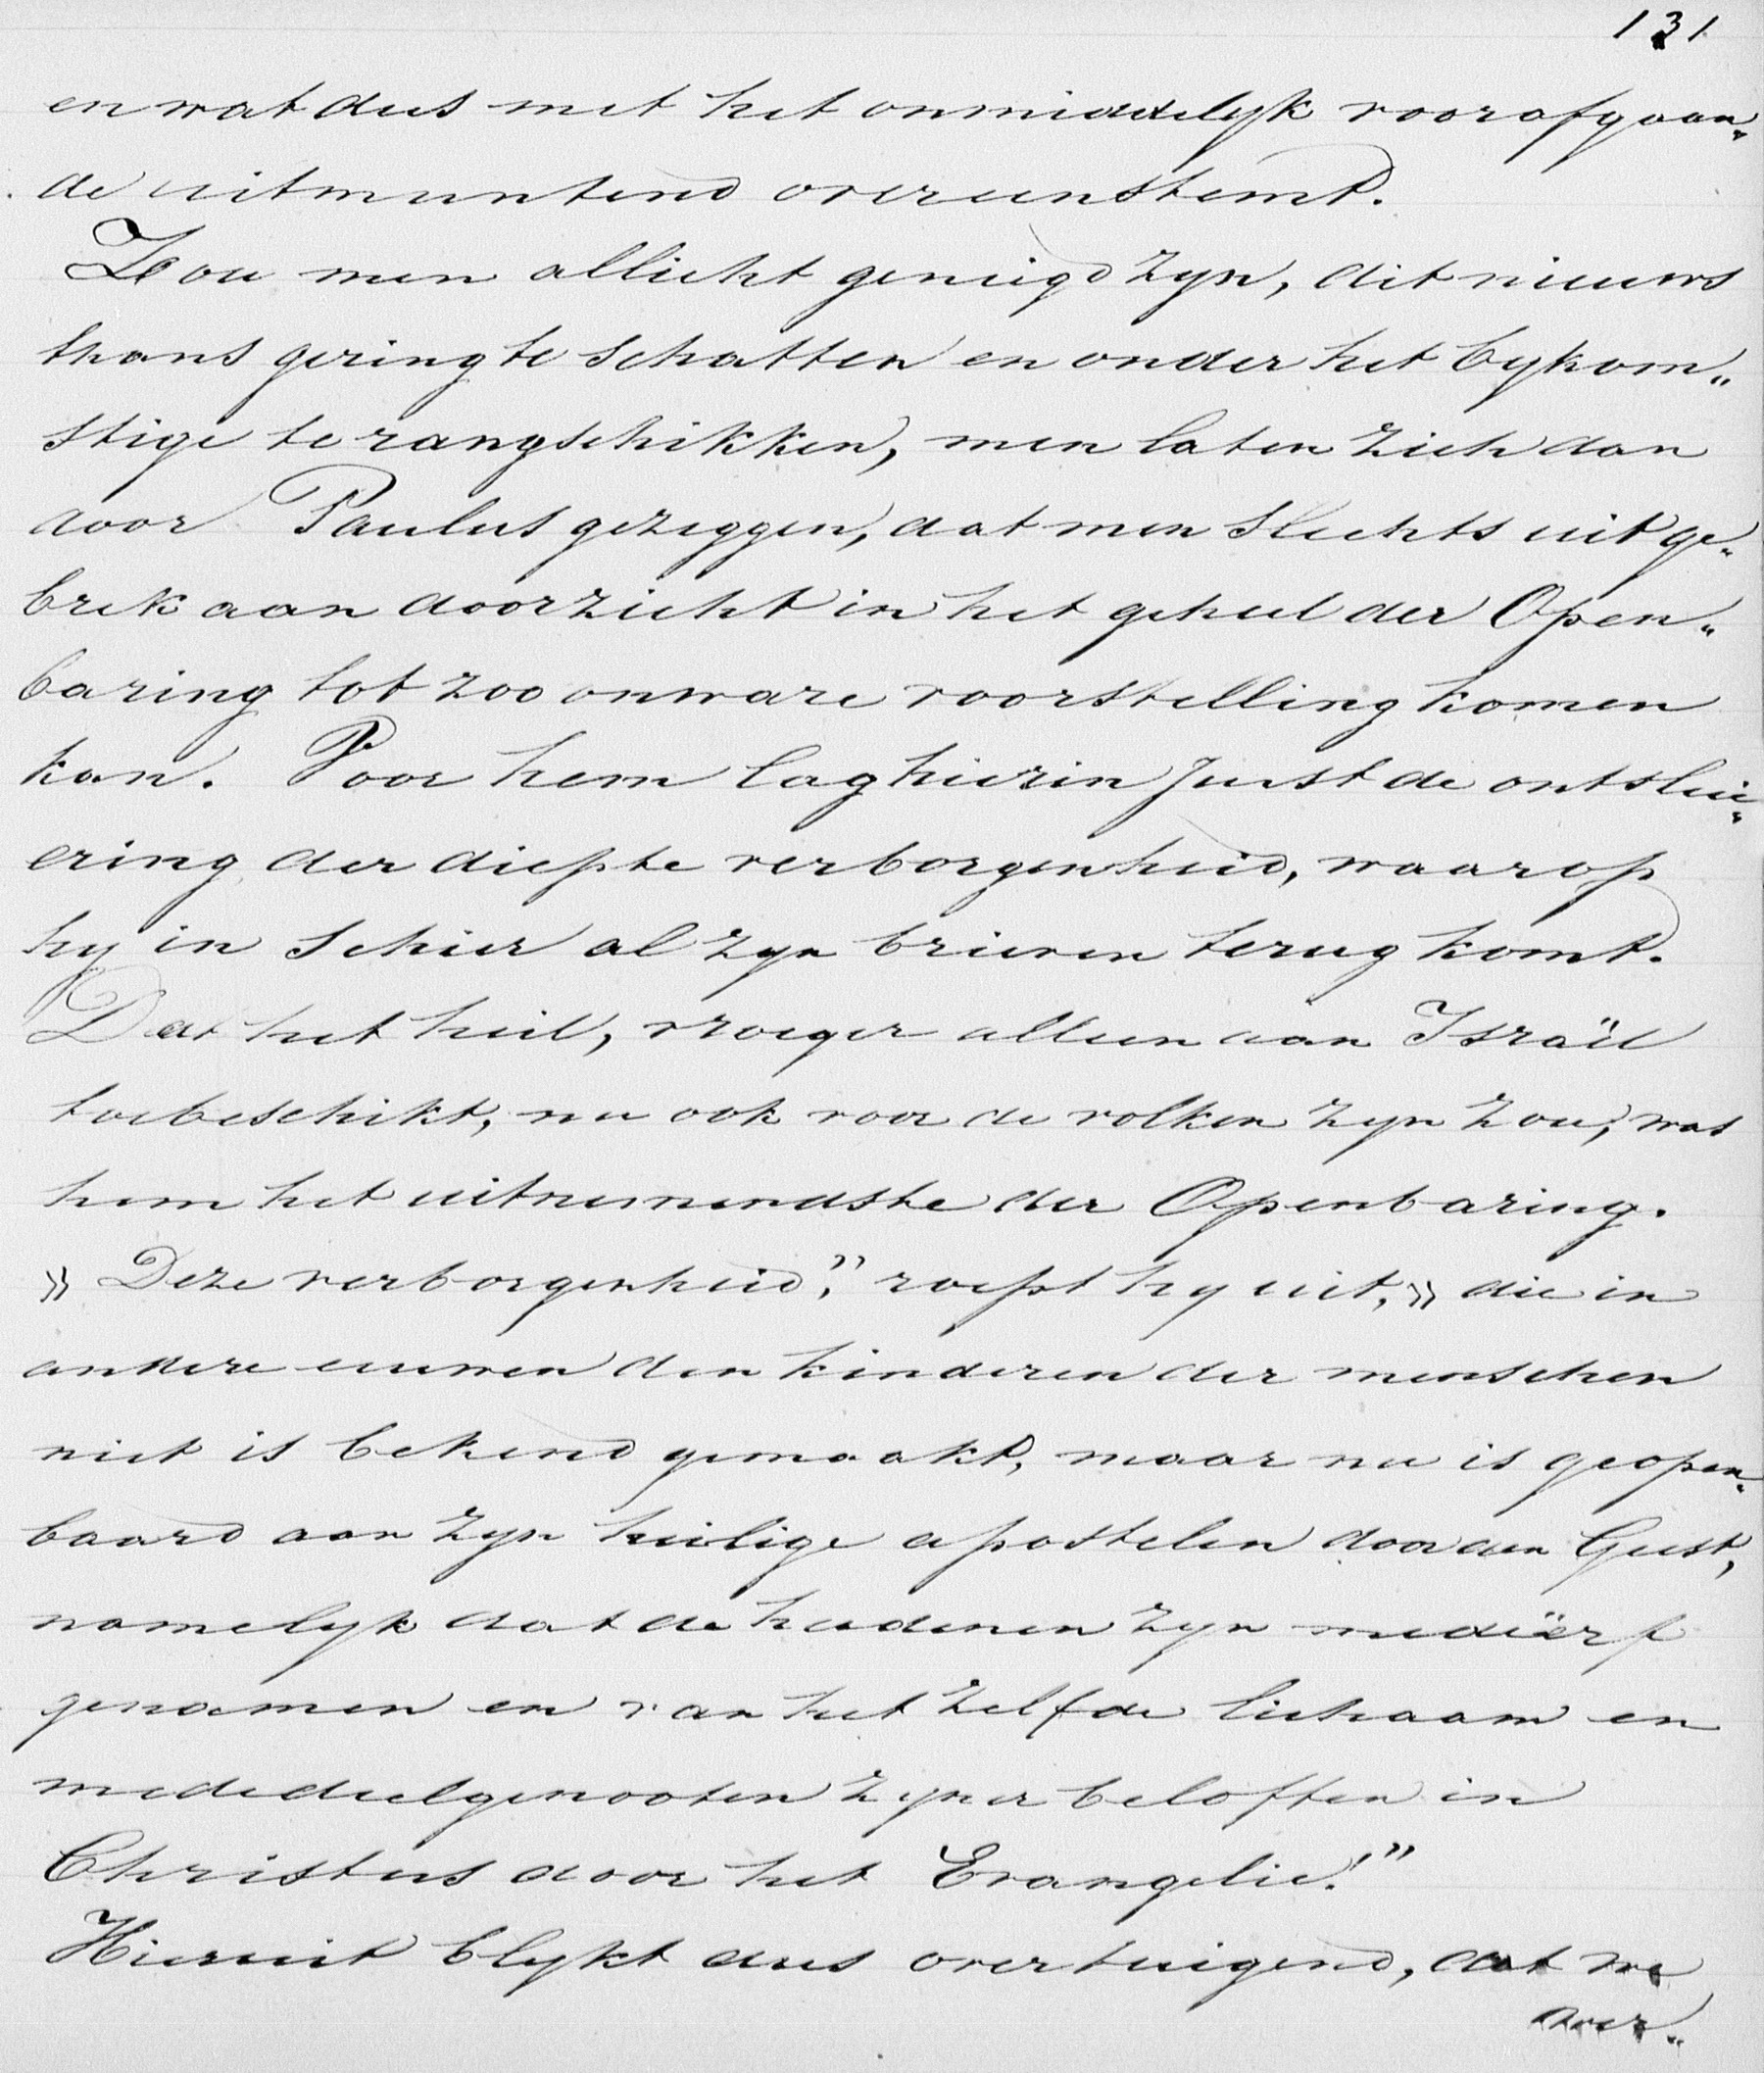 131
en wat dus met het onmiddelyk voorafgaan„
de uitmuntend overeenstemt.
Zou men allicht geneigd zyn, dit nieuws
thans gering te schatten en onder het bykom„
stige te rangschikken, men laten zich dan
door Paulus gezeggen, dat men slechts uit ge„
brek aan doorzicht in het geheel der Open„
baring tot zoo onware voorstelling komen
kan. Voor hem lag hierin juist de ontslui„
ering der diepste verborgenheid, waarop
hy in schier al zyn brieven terug komt.
Dat het heil, vroeger alleen aan Israël
toebeschikt, nu ook voor de volken zyn zou, was
hem het uitnemendste der Openbaring.
„Deze verborgenheid," roept hy uit, „die in
andere eeuwen den kinderen der menschen
niet is bekend gemaakt, maar nu is geopen„
baard aan zyn heilige apostelen door den Geest,
namelyk dat de heidenen zyn medeërf
genamen en van het zelfde lichaam en
mededeelgenooten zyner beloften in
Christus door het Evangelie!"
Hieruit blykt dus overtuigend, dat we
over„